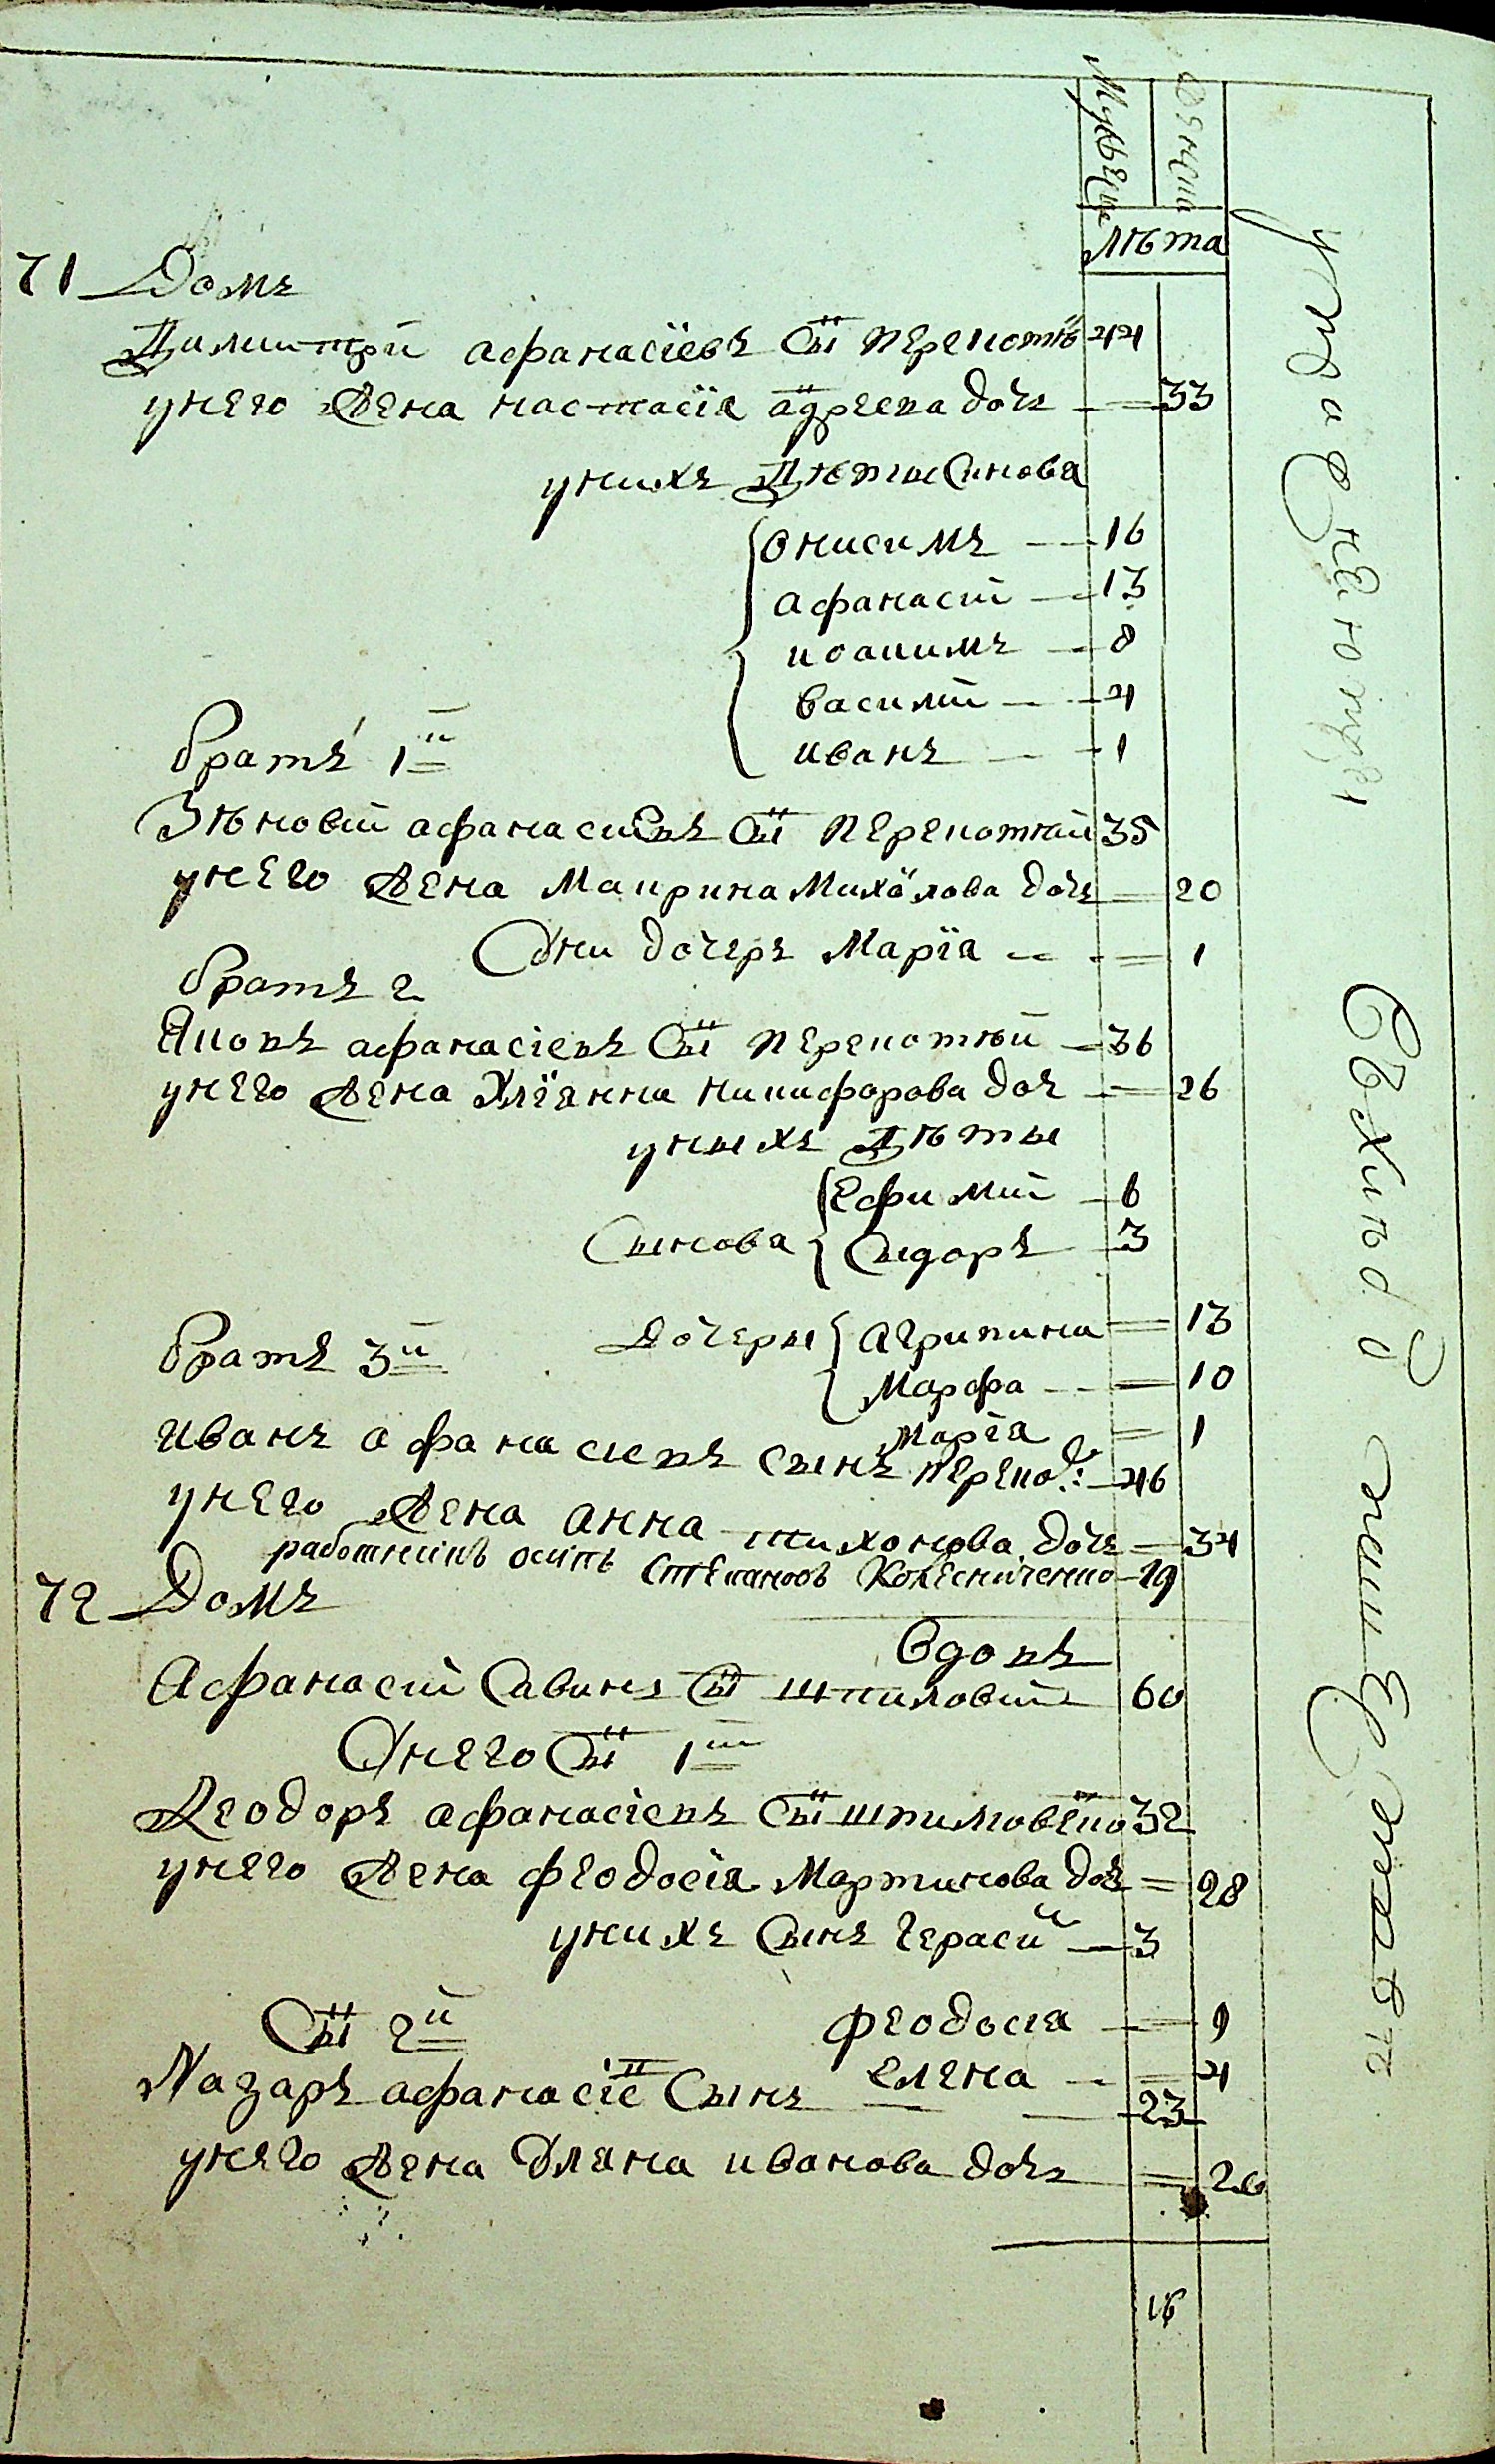 Мужеска
Женска
лѣта
71 Домъ
Димитрй афанасїевъ сн҃ъ перекотнй 44
унего жена настасїя адреева дочъ 33
унихъ дѣты синова
онисимъ 16
афанасїй 13
иоакимъ 8
василїй 4
иванъ 1
братъ 1й
Зѣновїй афанасиевъ сн҃ъ перекотнїй 35
унего жена Маирина Михайлова дочъ 20
Они дочеръ Марїя 1
братъ 2
Яковъ афанасїевъ сн҃ъ перекотнїй 36
унего жена Улїянна никифорова доч 26
уныхъ дѣты
Сынова
ефимїй 6
Сыдоръ 3
дочеры
агрипина 13
Марфа 10
Марїя 1
братъ 3й
иванъ афанасиевъ сынъ переко: 46
унего жена анна тихонова дочъ 34
работникъ осипъ Степановъ Колесниченко 19
72 Домъ
Вдовъ
Афанасїй Савинъ сн҃ъ шпиловїй 60
Унего сн҃ъ 1й
Феодоръ афанасїевъ сн҃ъ шпиловенко 32
унего жена феодосїя Мартинова доч 28
унихъ сынъ Гераси 3
феодосия 9
елена 4
сн҃ъ 2й
Назаръ афанасїе Сынъ 23
унего жена Уляна иванова дочъ 20
16